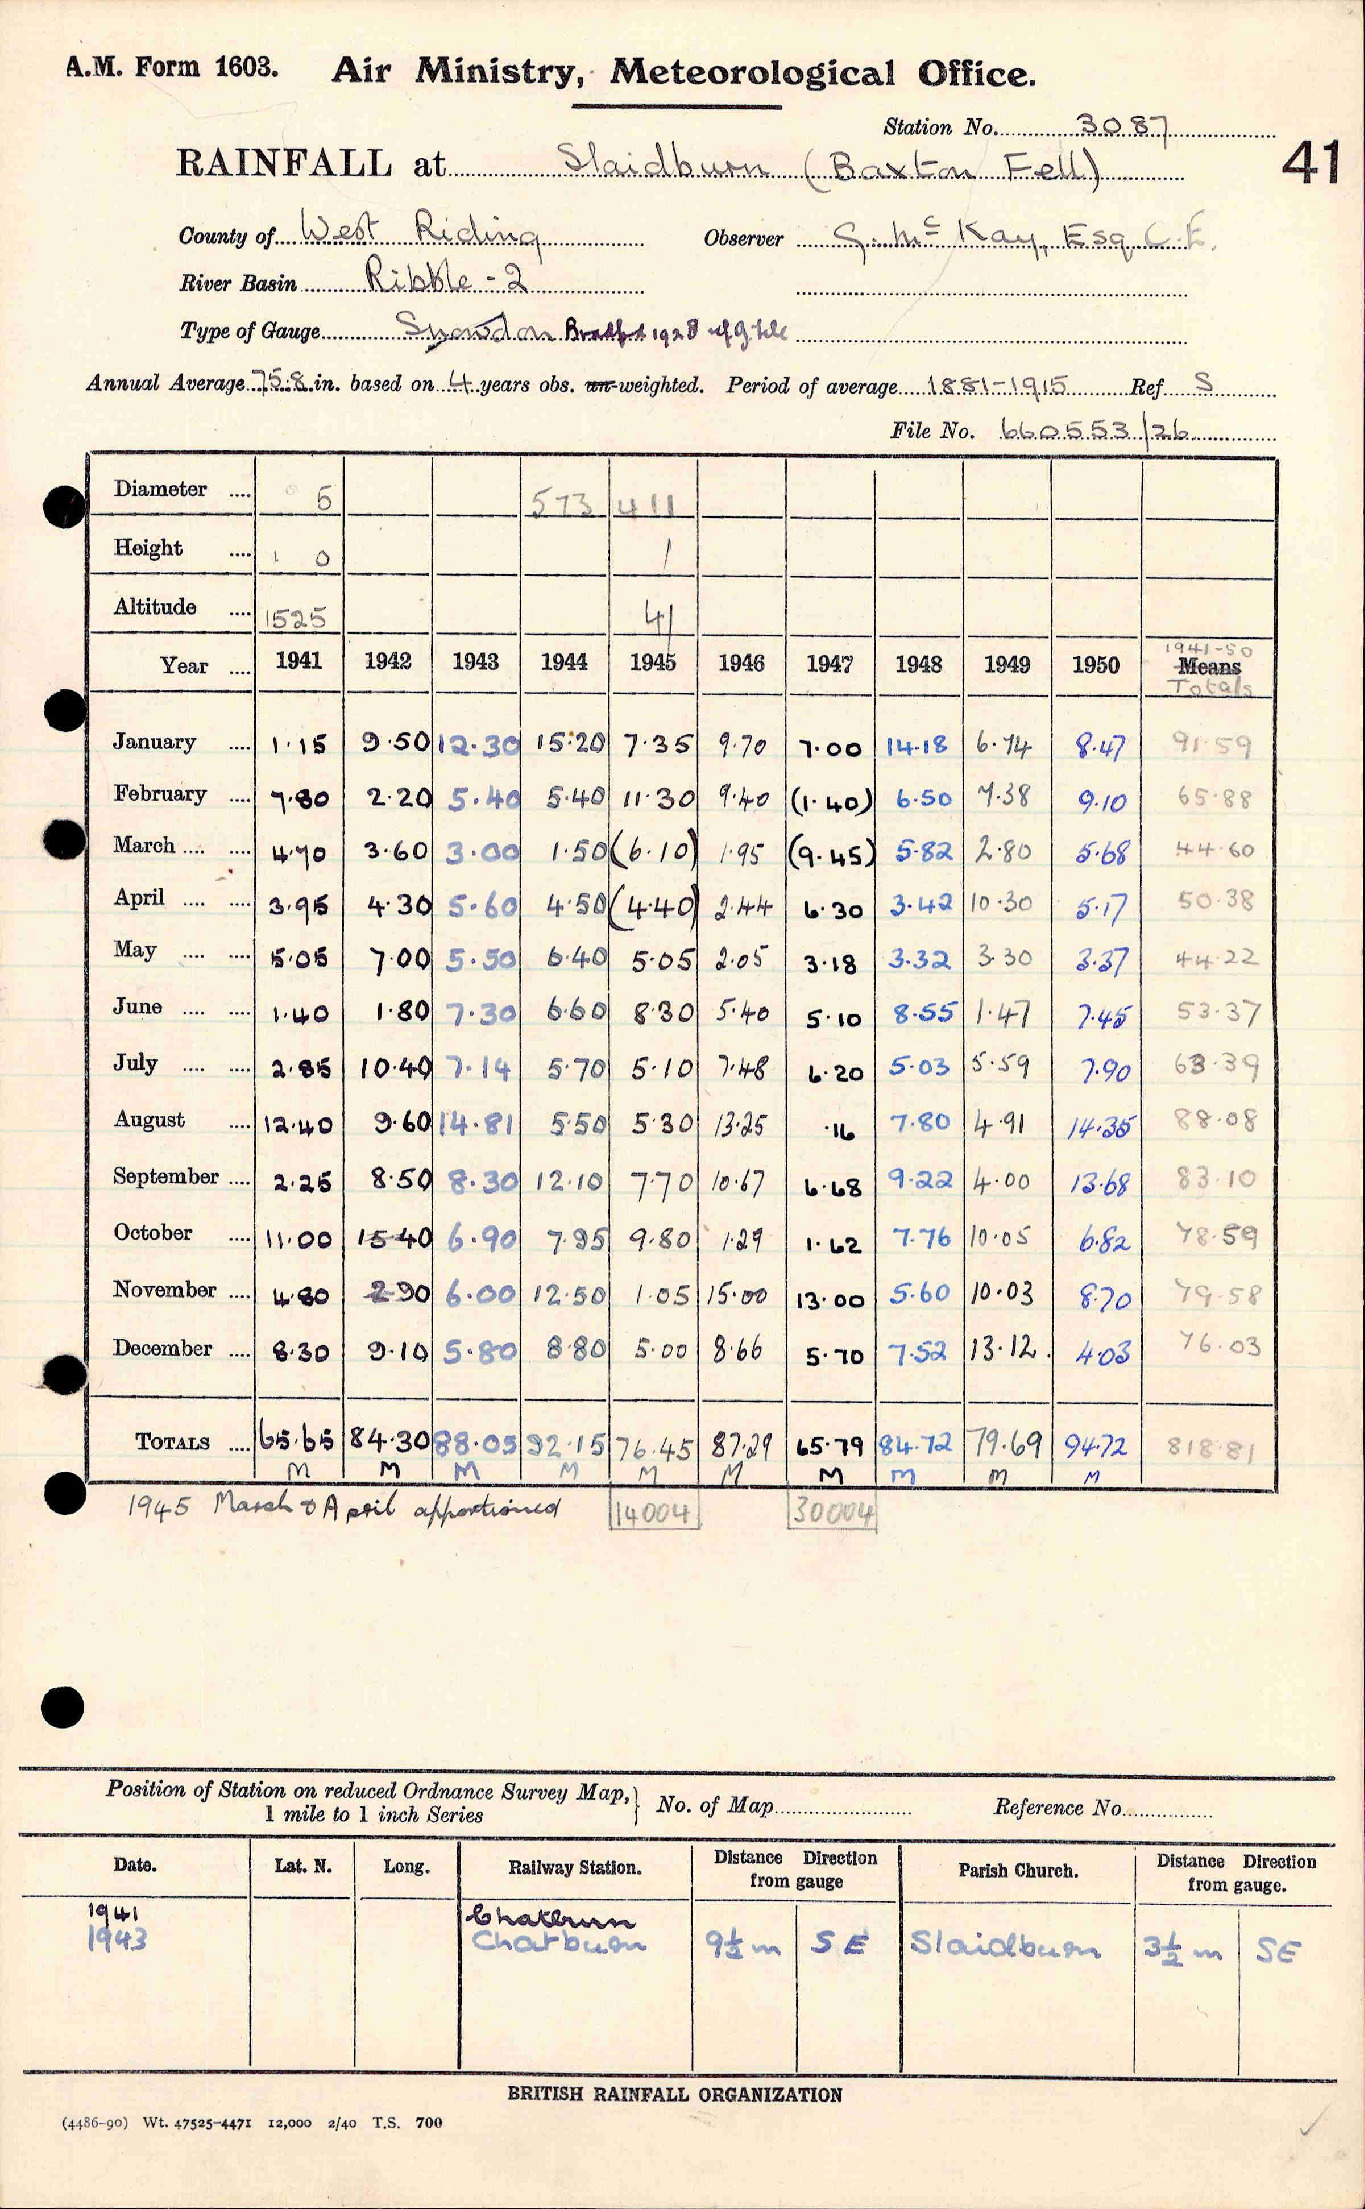 A.M. Form 1603. Air Ministry, Meteorological Office.
Station No. 3087
41
RAINFALL at Slaidburn (Baxton Fell)
County of West Riding Observer G. McKay, Esq C.E.
River Basin Ribble - 2
Type of Gauge Snowdon Bradford 1928
Annual Average 75.8 in. based on 4 years obs. un-weighted. Period of average 1881-1915 Ref S
File No. 660553/26
Diameter .... 5 573 411
Height .... 1 0 1
Altitude .... 1525 41
Year .... 1941 1942 1943 1944 1945 1946 1947 1948 1949 1950 1941-50 Means Totals
January .... 1.15 9.50 12.30 15.20 7.35 9.70 7.00 14.18 6.74 8.47 91.59
February .... 7.80 2.20 5.40 5.40 11.30 9.40 (1.40) 6.50 7.38 9.10 65.88
March .... .... 4.70 3.60 3.00 1.50 (6.10) 1.95 (9.45) 5.82 2.80 5.68 44.60
April .... .... 3.95 4.30 5.60 4.50 (4.40) 2.44 6.30 3.42 10.30 5.17 50.38
May .... .... 5.05 7.00 5.50 6.40 5.05 2.05 3.18 3.32 3.30 3.37 44.22
June .... .... 1.40 1.80 7.30 6.60 8.30 5.40 5.10 8.55 1.47 7.45 53.37
July .... .... 2.85 10.40 7.14 5.70 5.10 7.48 6.20 5.03 5.59 7.90 63.39
August .... 12.40 9.60 14.81 5.50 5.30 13.25 .16 7.80 4.91 14.35 88.08
September .... 2.25 8.50 8.30 12.10 7.70 10.67 6.68 9.22 4.00 13.68 83.10
October .... 11.00 15.40 6.90 7.95 9.80 1.29 1.62 7.76 10.05 6.82 78.59
November .... 4.80 2.90 6.00 12.50 1.05 15.00 13.00 5.60 10.03 8.70 79.58
December .... 8.30 9.10 5.80 8.80 5.00 8.66 5.70 7.52 13.12. 4.03 76.03
TOTALS .... 65.65 84.30 88.05 92.15 76.45 87.29 65.79 84.72 79.69 94.72 818.81
M M M M M M M M M M
1945 March & April apportioned 14004 30004
Position of Station on reduced Ordnance Survey Map, 1 mile to 1 inch Series } No. of Map Reference No.
Date. Lat. N. Long. Railway Station. Distance Direction from gauge Parish Church. Distance Direction from gauge.
1941 Chatburn
1943 Chatburn 9½ m SE Slaidburn 3½ m SE
BRITISH RAINFALL ORGANIZATION
(4486-90) Wt. 47525-4471 12,000 2/40 T.S. 700